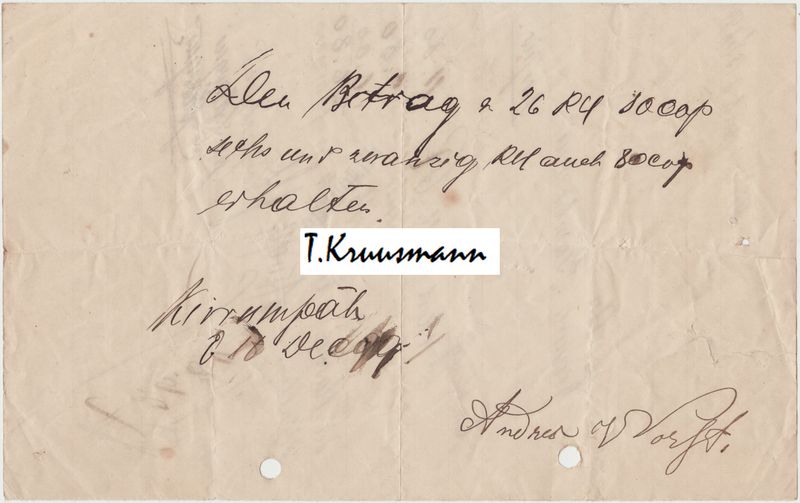 Den Betrag v 26 Rbl 80 cop
sechs und zwanzig Rbl auch 80 cop
erhalten.
T.Kruusmann
Kirrumpäh
d 18 Dec
Andres